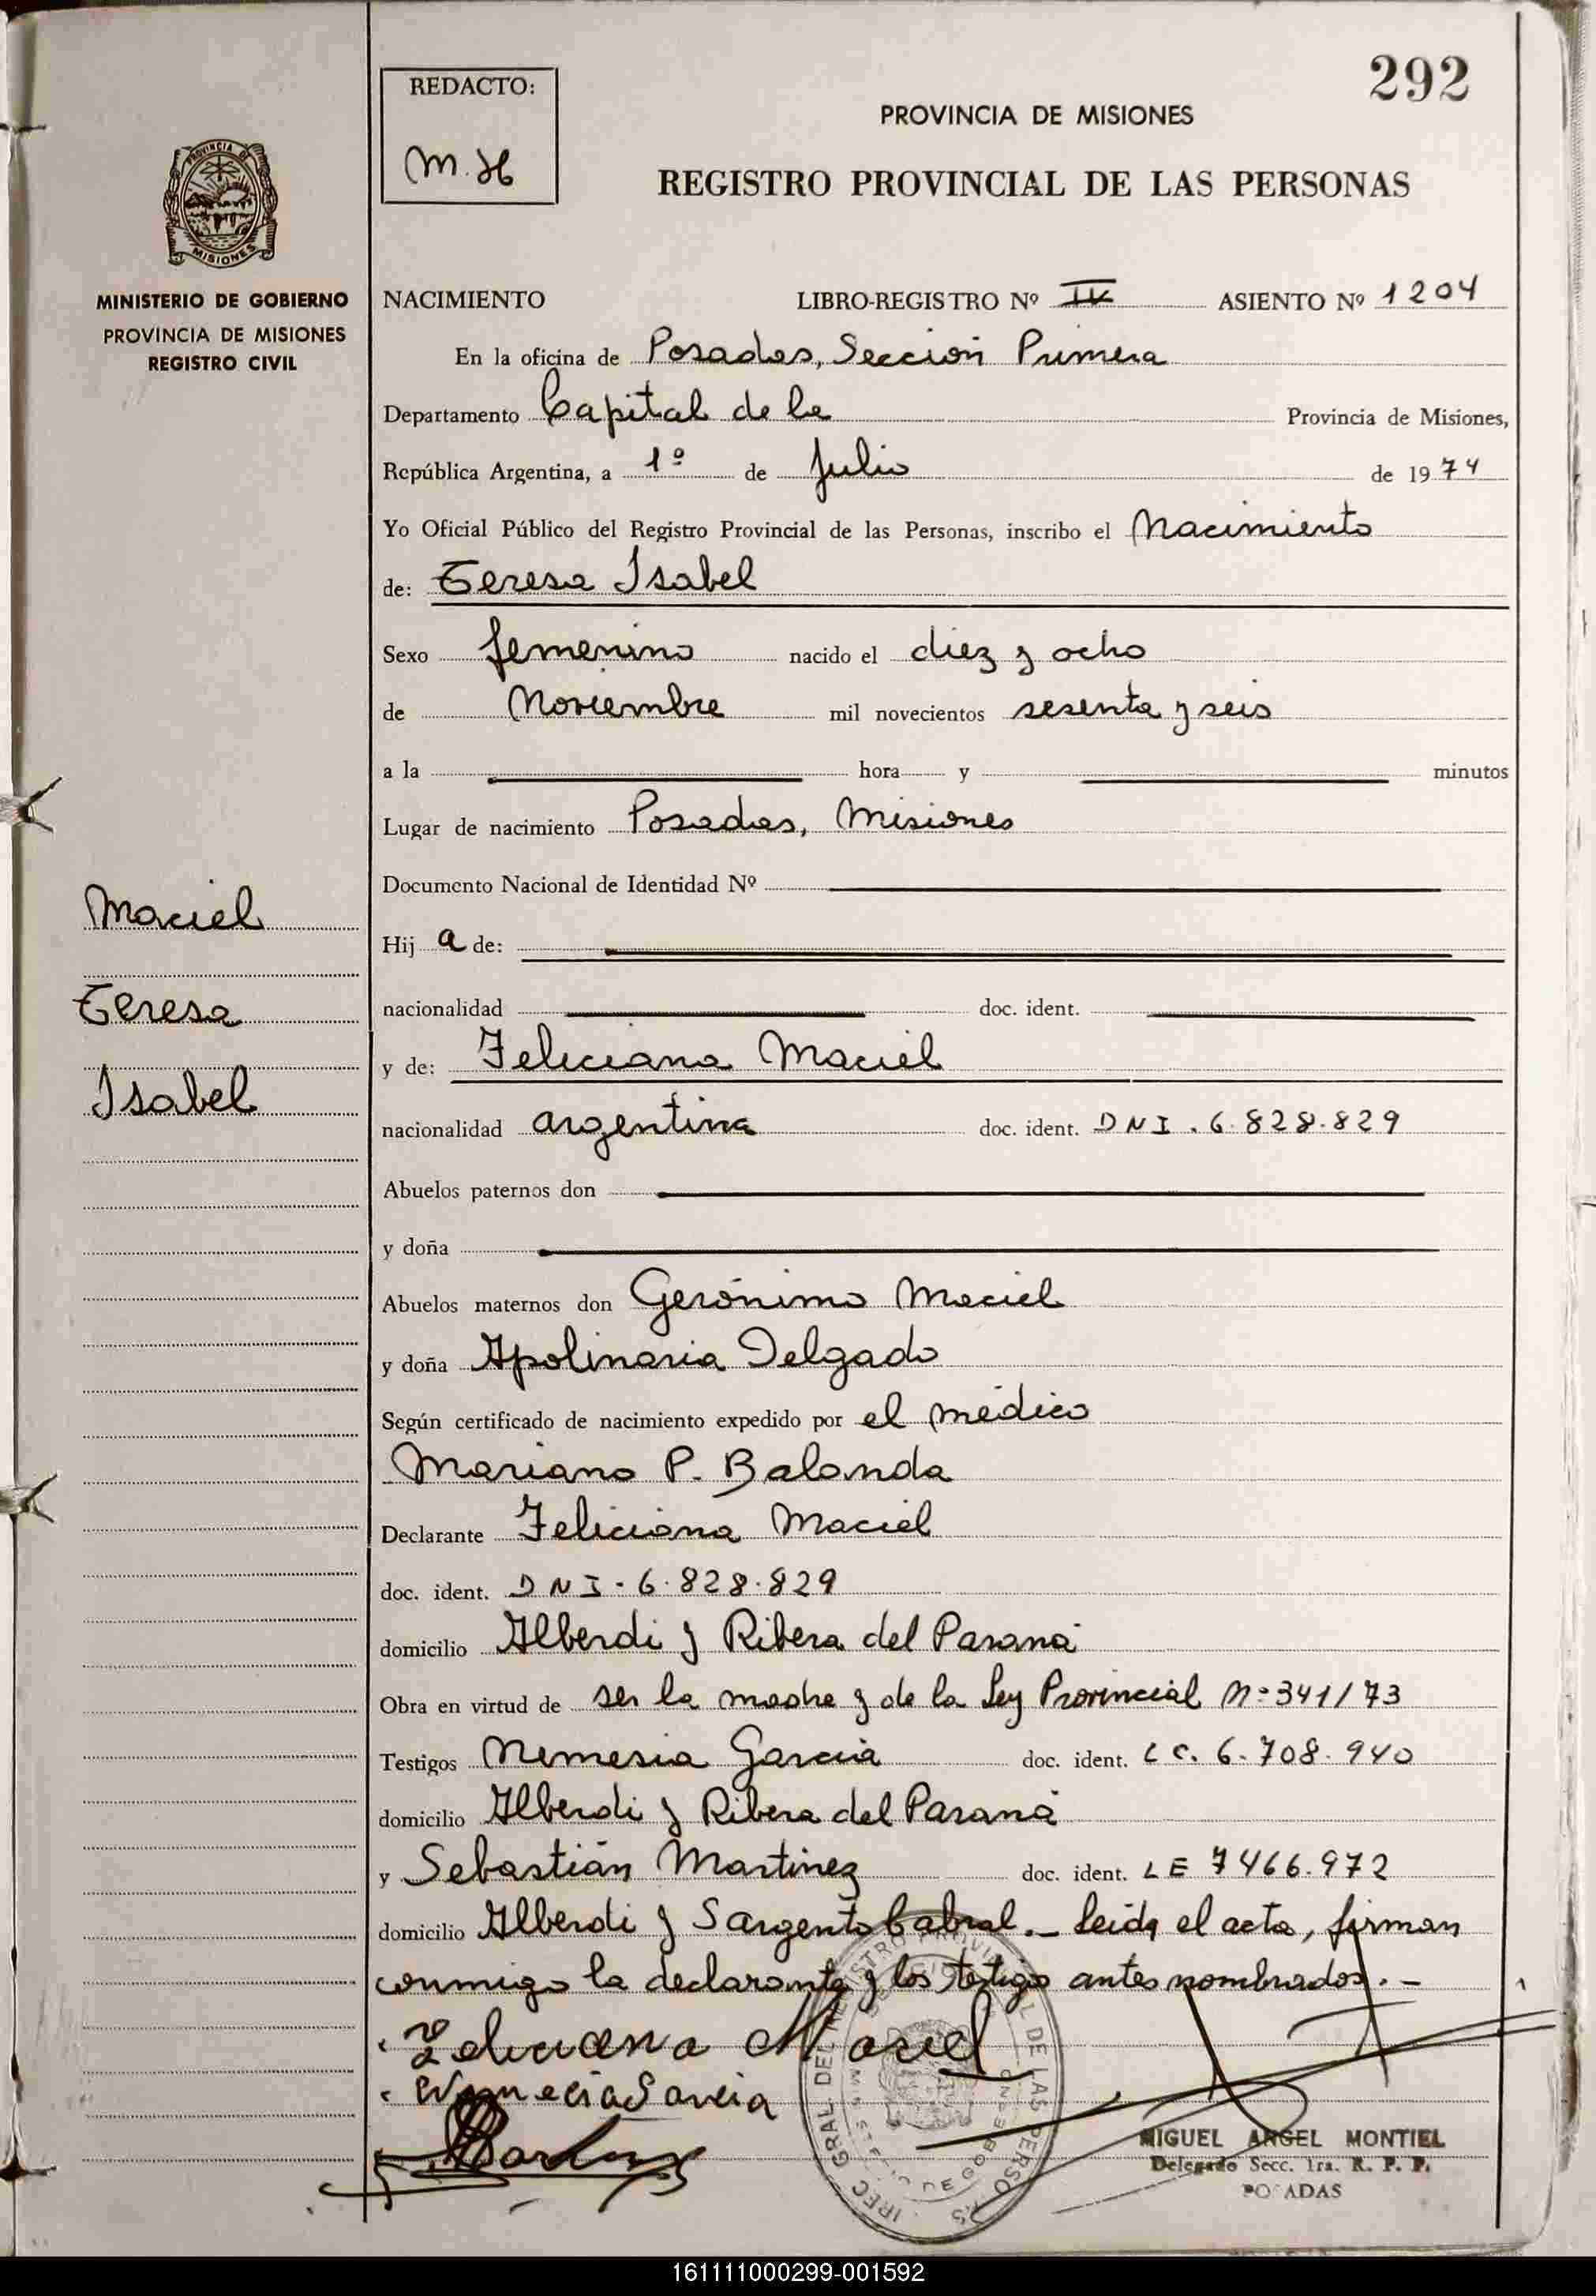 292
REDACTO:
M. H
PROVINCIA DE MISIONES
REGISTRO PROVINCIAL DE LAS PERSONAS
PROVINCIA DE
MISIONES
MINISTERIO DE GOBIERNO
PROVINCIA DE MISIONES
REGISTRO CIVIL
NACIMIENTO LIBRO-REGISTRO Nº IV ASIENTO Nº 1204
En la oficina de Posadas, Sección Primera
Departamento Capital de la Provincia de Misiones,
República Argentina, a 1º de Julio de 1974
Yo Oficial Público del Registro Provincial de las Personas, inscribo el Nacimiento
de: Teresa Isabel
Sexo femenino nacido el diez y ocho
de Noviembre mil novecientos sesenta y seis
a la hora y minutos
Lugar de nacimiento Posadas, Misiones
Documento Nacional de Identidad Nº
Maciel
Hij a de:
Teresa
nacionalidad doc. ident.
y de: Feliciana Maciel
Isabel
nacionalidad argentina doc. ident. DNI. 6.828.829
Abuelos paternos don
y doña
Abuelos maternos don Gerónimo Maciel
y doña Apolinaria Delgado
Según certificado de nacimiento expedido por el médico
Mariano P. Balanda
Declarante Feliciana Maciel
doc. ident. DNI-6.828.829
domicilio Alberdi y Ribera del Paraná
Obra en virtud de ser la madre y de la Ley Provincial Nº 341/73
Testigos Nemesia Garcia doc. ident. LC. 6.708.940
domicilio Alberdi y Ribera del Paraná
y Sebastián Martinez doc. ident. LE 7466.972
domicilio Alberdi y Sargento Cabral._ Leida el acta, firman
conmigo la declarante y los testigos antes nombrados.-
Feliciana Maciel
Nemecia Garcia
MIGUEL ANGEL MONTIEL
Delegado Secc. 1ra. R. P. P.
POSADAS
161111000299-001592